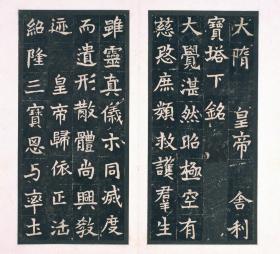 大隋 皇帝 舍利
寶塔下銘
大覺湛然昭極空有
慈愍庶類救護羣生
雖靈真儀示同滅度
而遺形散體尚興教
迹 皇帝歸依正法
紹隆三寶思与率土